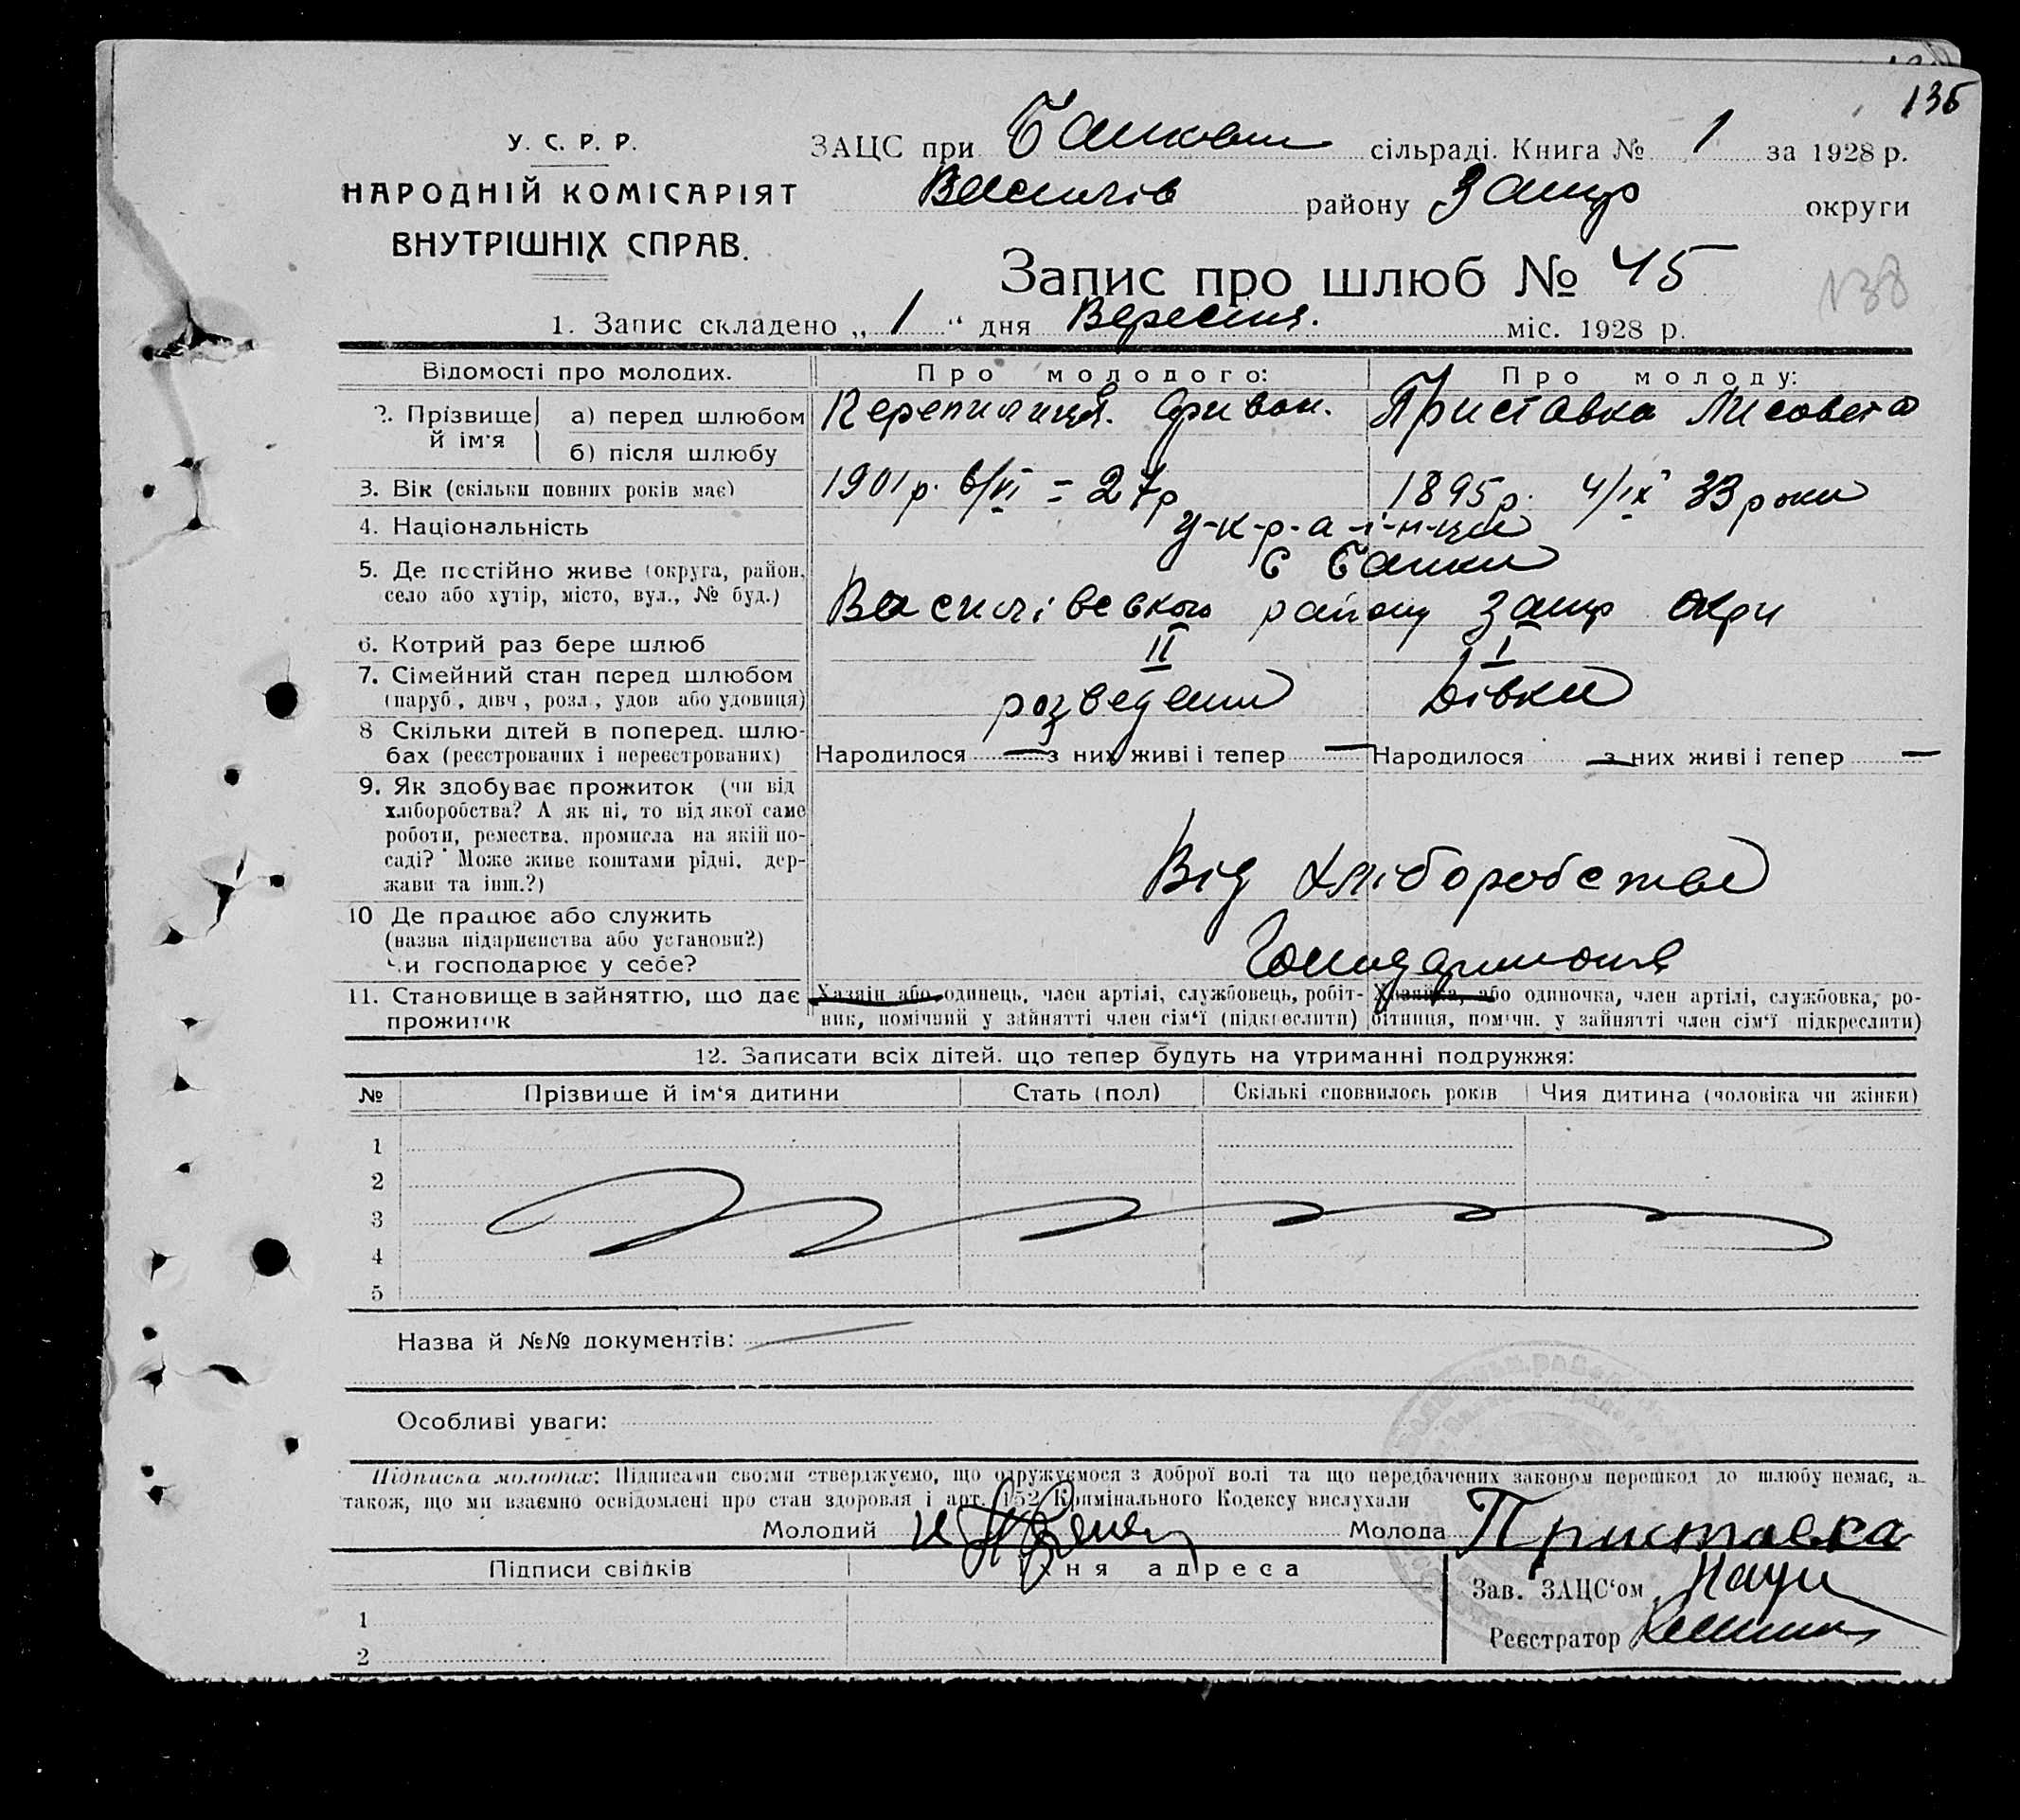 135
У. С. Р. Р.
НАРОДНІЙ КОМІСАРІЯТ
ВНУТРІШНІХ СПРАВ.
ЗАЦС при сільраді. Книга № 1 за 1928 р.
Василів району Запор округи
Запис про шлюб № 45
138
1. Запис складено „ 1 “ дня Вересня. міс. 1928 р.
Відомості про молодих. Про молодого: Про молоду:
2. Прізвище й ім'я а) перед шлюбом Приставка Лисовета
б) після шлюбу
3. Вік (скільки повних років має) 1901 р. 6/VI = 27 р 1895 р. 4/IX 33 роки
4. Національність у-к-р-а-ї-н-ци
5. Де постійно живе (округа, район, село або хутір, місто, вул., № буд.) с Балки
Василівського району Запор окри
6. Котрий раз бере шлюб II I
7. Сімейний стан перед шлюбом
(паруб., дівч., розл., удов або удовиця) розведений дівка
8 Скільки дітей в поперед. шлюбах (реєстрованих і нереєстрованих) Народилося — з них живі і тепер — Народилося — з них живі і тепер —
9. Як здобуває прожиток (чи від
хліборобства? А як ні, то від якої саме
роботи, ремества, промисла на якій по-
саді? Може живе коштами рідні, дер-
жави та інш.?) Від хліборобства
10 Де працює або служить
(назва підприємства або установи?)
Чи господарює у себе?
11. Становище в зайняттю, що дає прожиток
Хазяїн або одинець, член артілі, службовець, робіт-
ник, помічний у зайнятті член сім'ї (підкреслити)
Хазяйка, або одиночка, член артілі, службовка, ро-
бітниця, помічн. у зайнятті член сім'ї підкреслити)
12. Записати всіх дітей. що тепер будуть на утриманні подружжя:
№ Прізвище й ім'я дитини Стать (пол) Скількі сповнилось років Чия дитина (чоловіка чи жінки)
1
2
3
4
5
Назва й №№ документів:
Особливі уваги:
Підписка молодих: Підписами своїми стверджуємо, що одружуємося з доброї волі та що передбачених законом перешкод до шлюбу немає, а
також, що ми взаємно освідомлені про стан здоровля і арт. 152 Кримінального Кодексу вислухали
Молодий Молода Приставка
Підписи свідків Їхня адреса
Зав. ЗАЦС'ом
1
Реєстратор
2